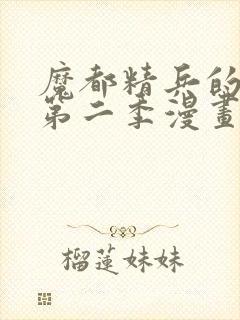 魔都精兵的
第二季漫畫
榴蓮妹妹